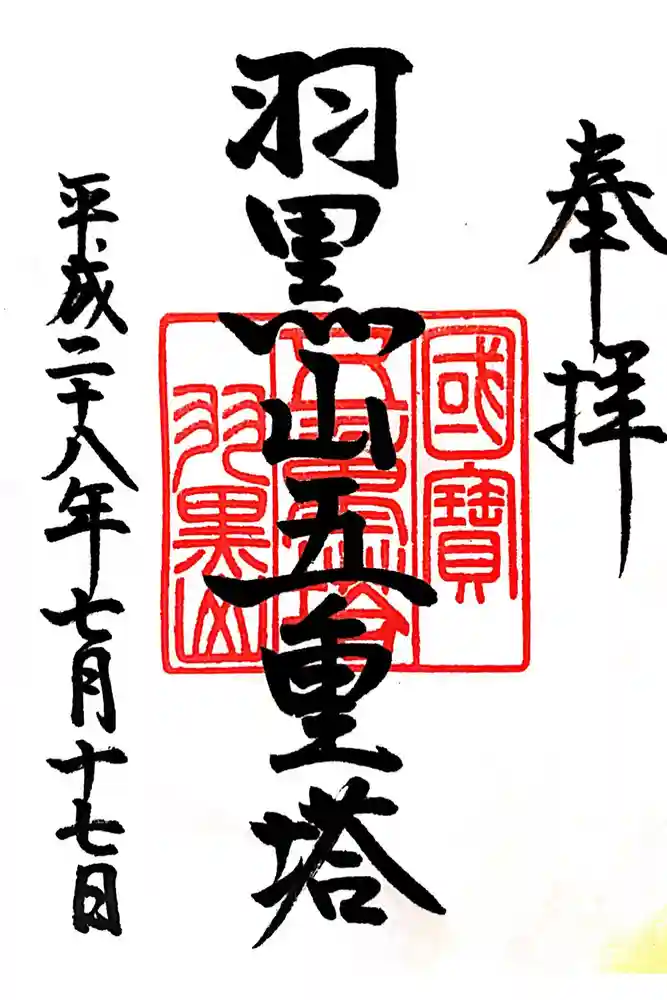 奉拝
國寶
五重塔
羽黒山
羽黒山五重塔
平成二十八年七月十七日